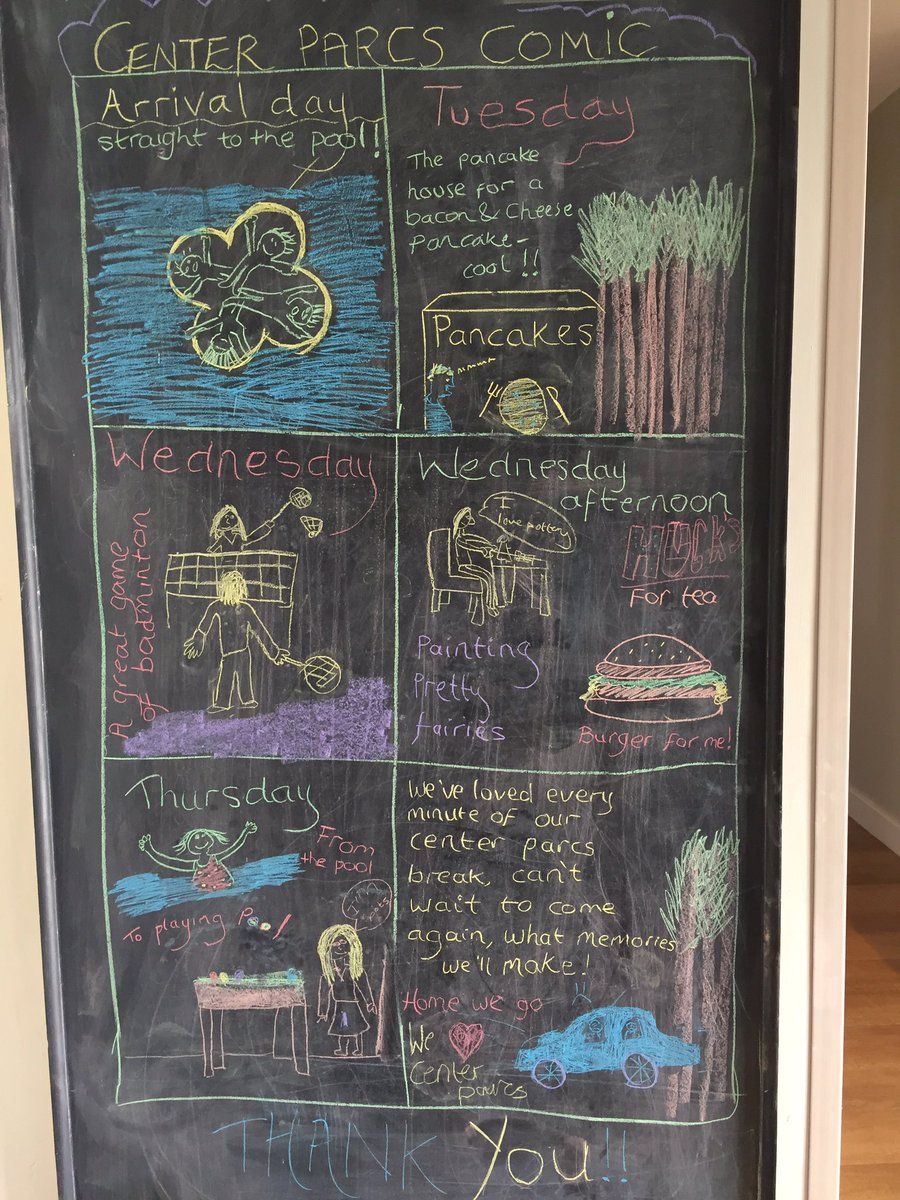 CENTER PARCS COMIC
Arrival day
straight to the pool!!
Tuesday
The pancake
house for a
bacon & cheese
pancake -
cool!!
Pancakes
Wednesday
A great game
of badminton
Wednesday
afternoon
I
love pottery
HUCK'S
For tea
Painting
Pretty
fairies
Burger for me!
Thursday
From
the pool
To playing Pool
We've loved every
minute of our
center parcs
break, can't
wait to come
again, what memories
we'll make!
Home we go
We
Center
parcs
THANK You!!